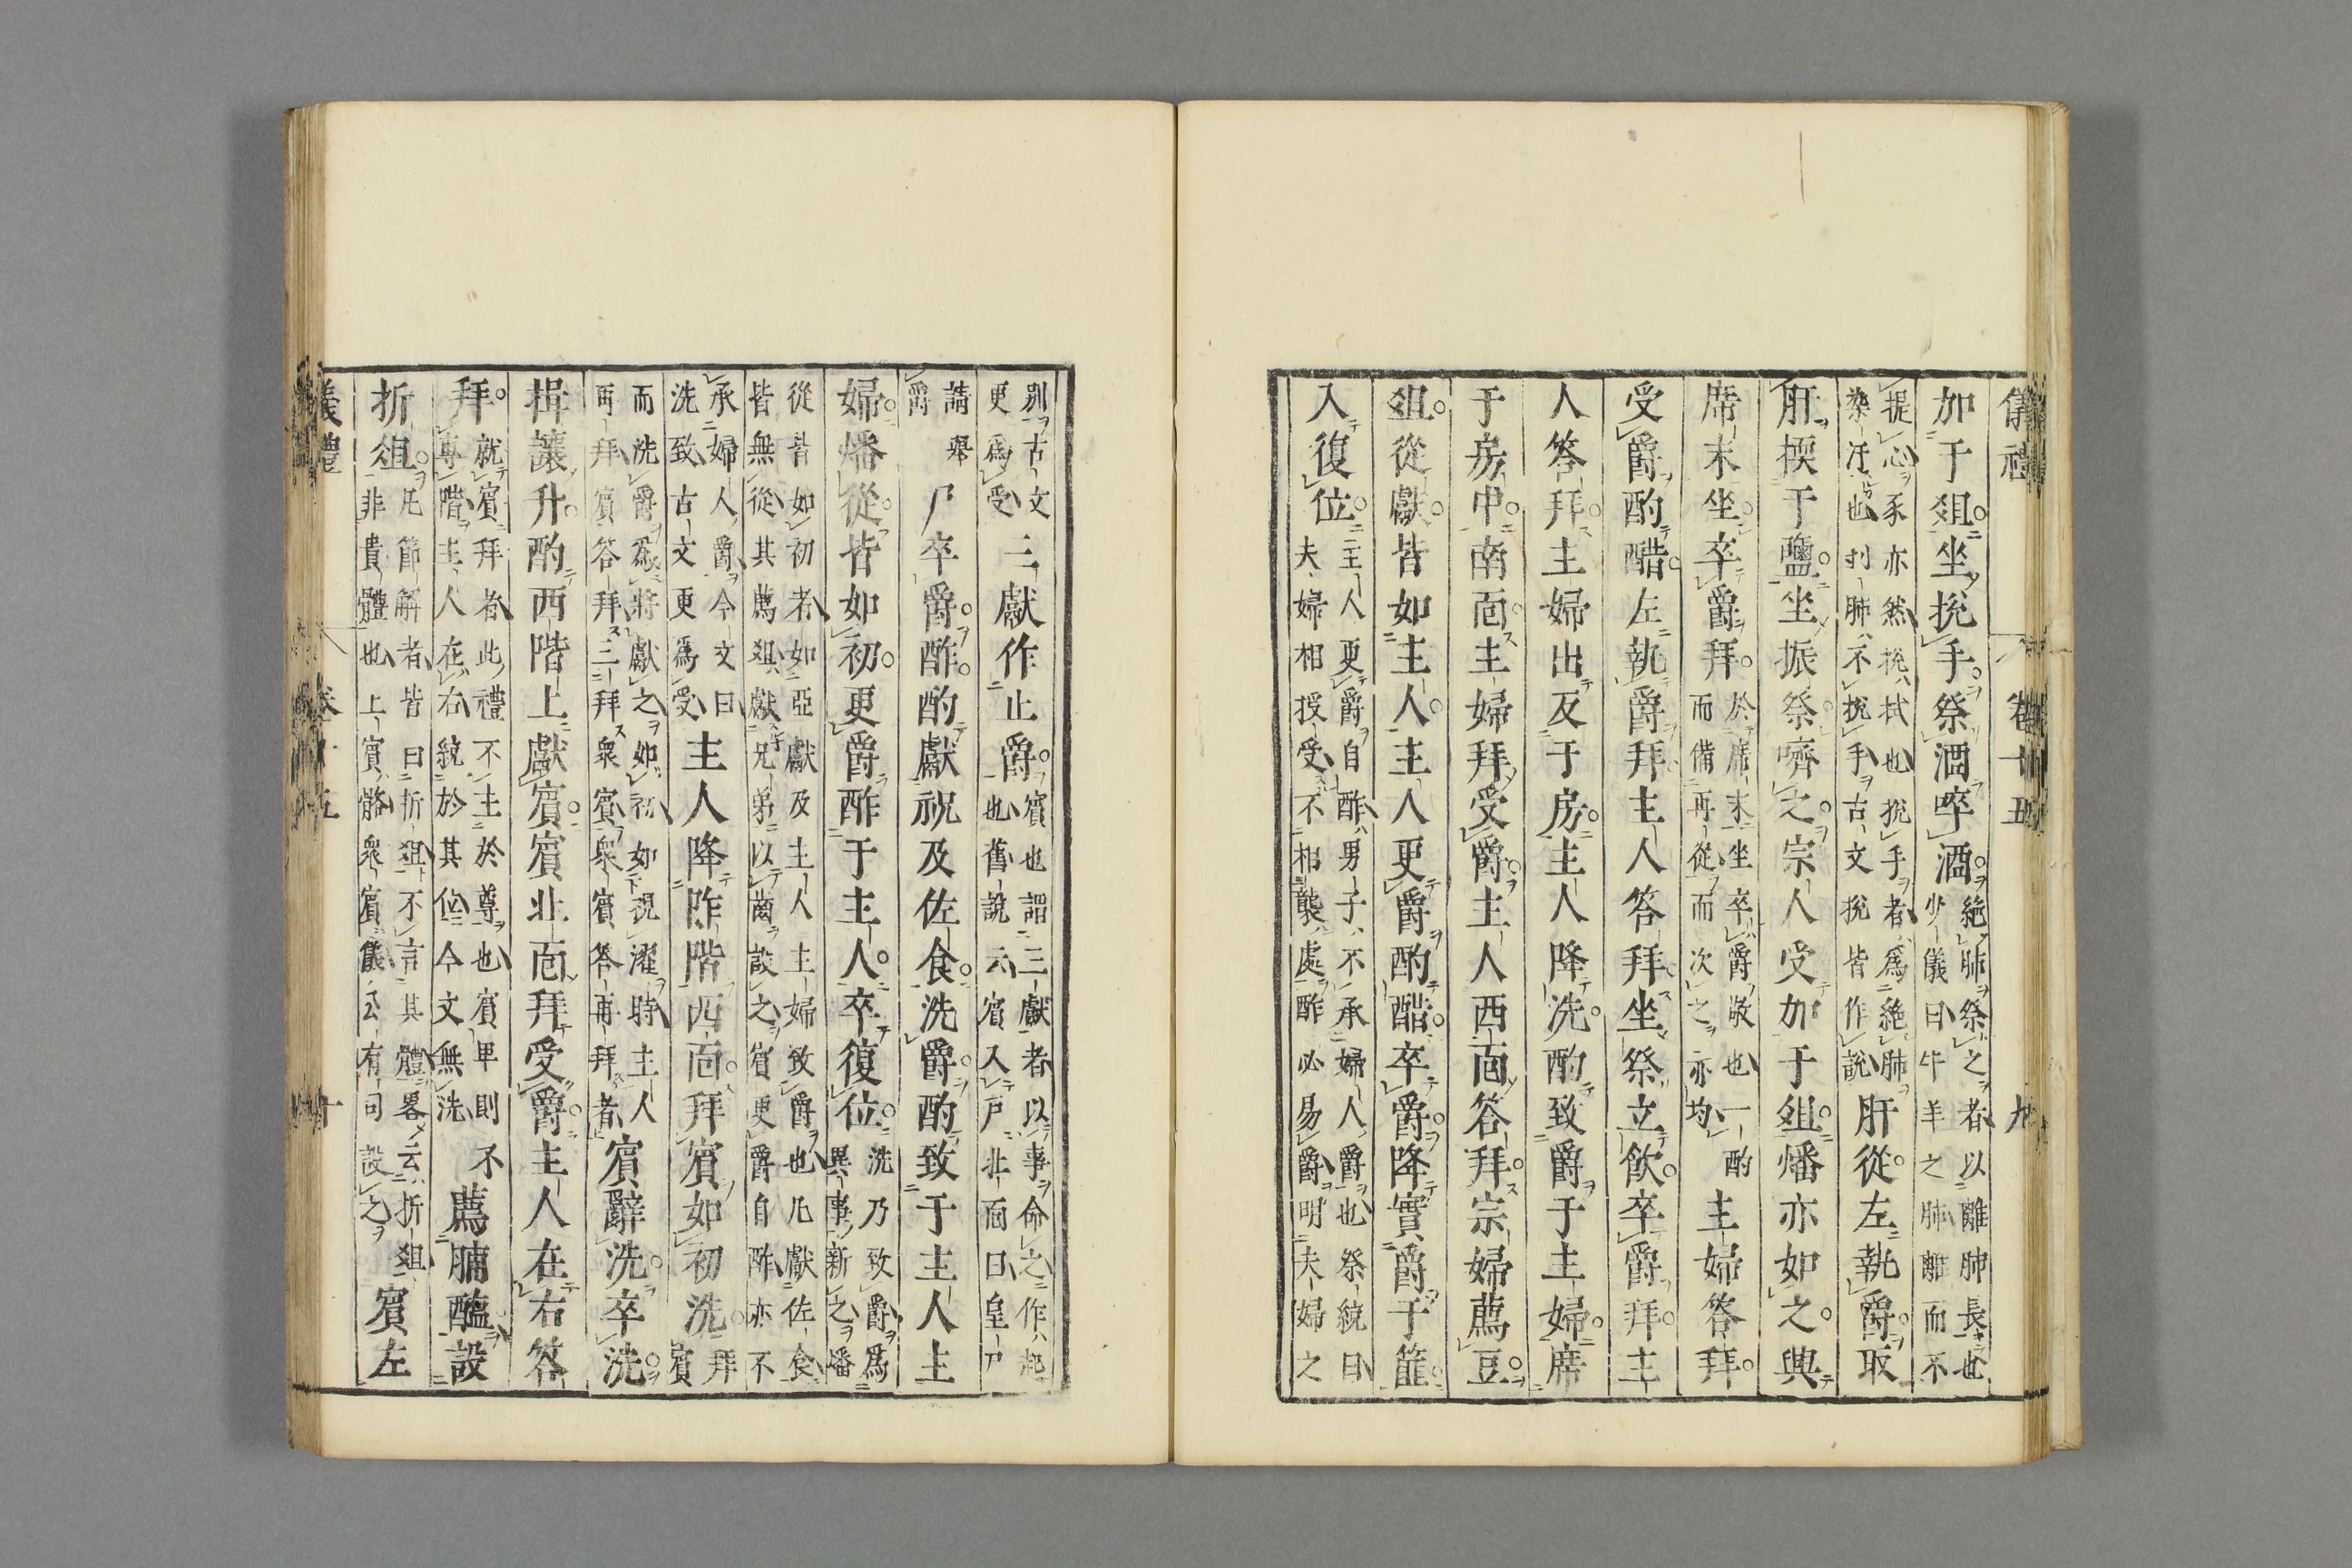 儀禮 卷十五 九
加于俎坐挩手祭酒啐酒絶肺祭之者以離肺長也
少儀曰牛羊之肺離而不
提心豕亦然挩拭也挩手者爲絶肺
染汙也刌肺不挩手古文挩皆作說肝從左執爵取
肝㨎于鹽坐振祭嚌之宗人受加于俎燔亦如之興
席末坐卒爵拜於席末坐卒爵敬也一酌
而備再從而次之亦均主婦答拜
受爵酌醋左執爵拜主人答拜坐祭立飲卒爵拜主
人答拜主婦出反于房主人降洗酌致爵于主婦席
于房中南面主婦拜受爵主人西面答拜宗婦薦豆
俎從獻皆如主人主人更爵酌醋卒爵降實爵于篚
入復位主人更爵自酢男子不承婦人爵也祭統曰
夫婦相授受不相襲處酢必易爵明夫婦之
别古文
更爲受三獻作止爵賓也謂三獻者以事命之作起
也舊說云賓入戸北面曰皇尸
請舉
爵尸卒爵酢酌獻祝及佐食洗爵酌致于主人主
婦燔從皆如初更爵酢于主人卒復位洗乃致爵爲
異事新之燔
從皆如初者如亞獻及主人主婦致爵也凡獻佐食
皆無從其薦俎獻兄弟以齒設之賓更爵自酢亦不
承婦人爵今文曰
洗致古文更爲受主人降阼階西面拜賓如初洗拜
賓
而洗爵爲將獻之如初如視濯時主人
再拜賓答拜三拜衆賓衆賓答再拜者賓辭洗卒洗
揖讓升酌西階上獻賓賓北面拜受爵主人在右答
拜就賓拜者此禮不主於尊也賓卑則不
專階主人在右統於其位今文無洗薦脯醢設
折俎凡節解者皆曰折俎不言其體畧云折俎
非貴體也上賓骼衆賓儀公有司設之賓左
儀禮 卷十五 十